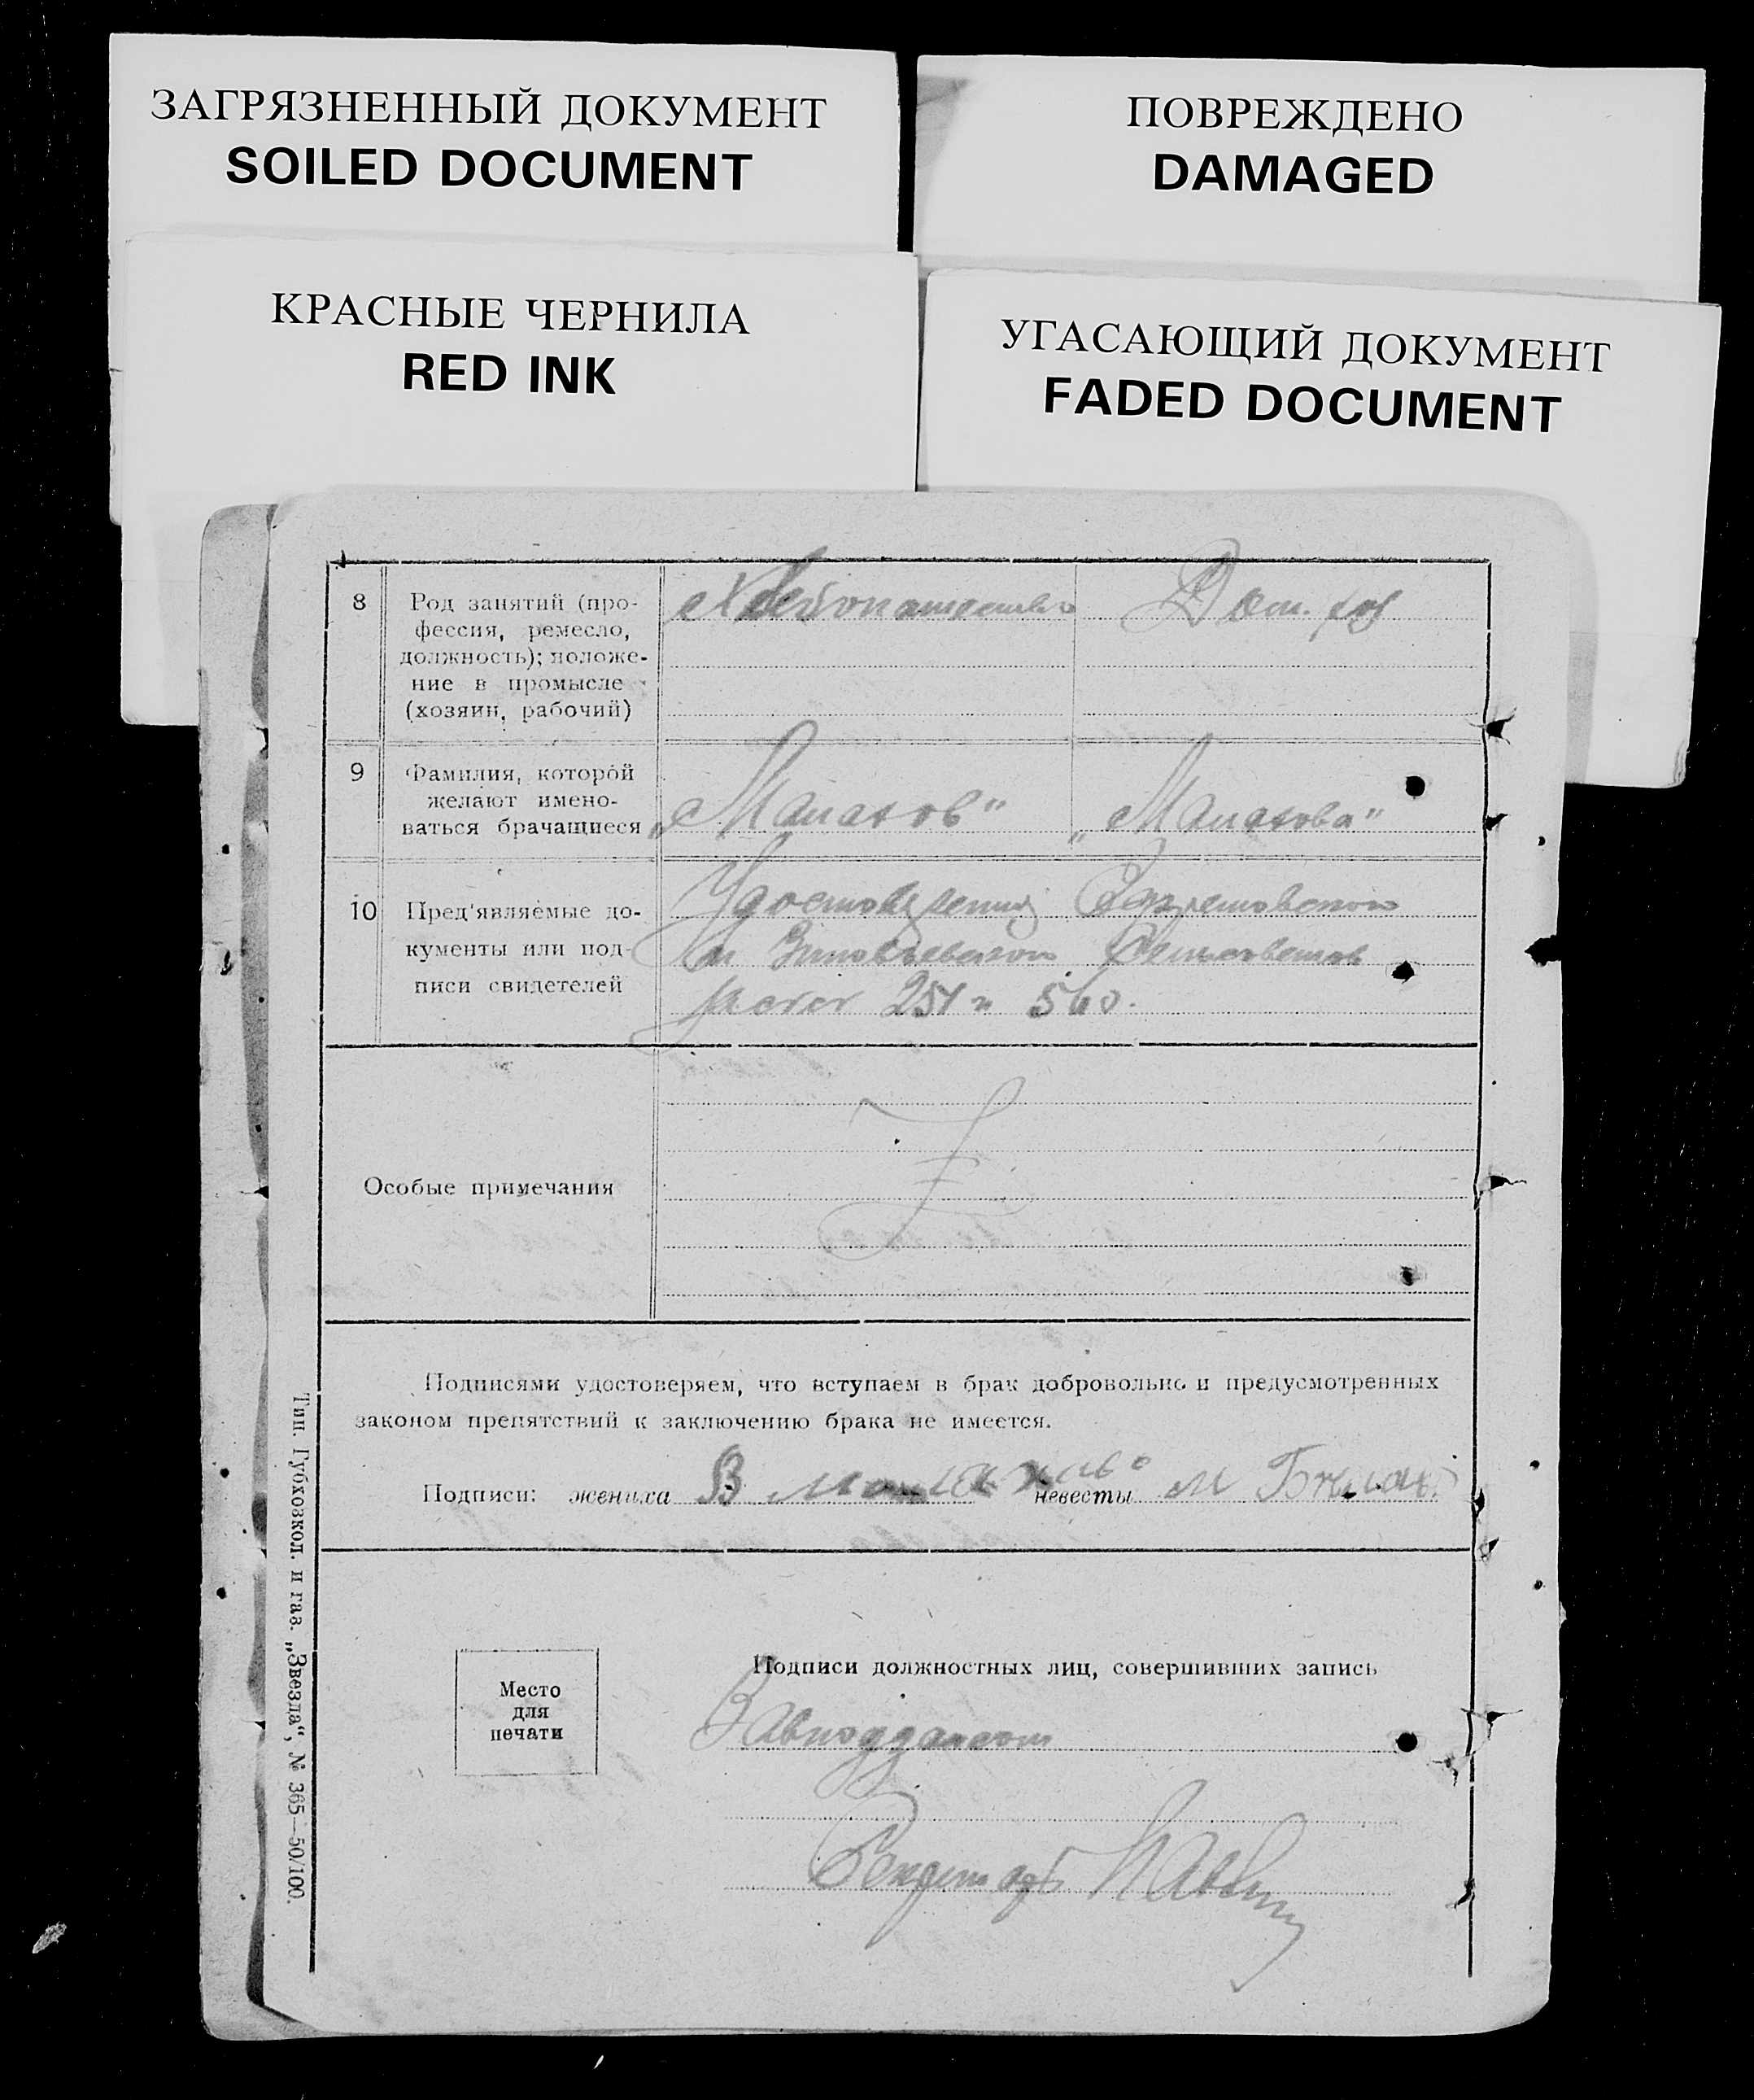 ЗАГРЯЗНЕННЫЙ ДОКУМЕНТ
SOILED DOCUMENT
ПОВРЕЖДЕНО
DAMAGED
КРАСНЫЕ ЧЕРНИЛА
RED INK
УГАСАЮЩИЙ ДОКУМЕНТ
FADED DOCUMENT
8
Род занятий (про-
фессия, ремесло,
должность); положе-
ние в промысле
(хозяин, рабочий)
Хлебопашество
Дом. хоз
9
Фамилия, которой
желают имено-
ваться брачащиеся
10
Пред'являемые до-
кументы или под-
писи свидетелей
Удостоверения
и Зиновьевского Сельсоветов
251 и 560.
Особые примечания
Подписями удостоверяем, что вступаем в брак добровольно и предусмотренных
законом препятствий к заключению брака не имеется.
Подписи: жениха В невесты М
Место
для
печати
Подписи должностных лиц, совершивших запись
Тип. Губхозкол. и газ. „Звезда", № 365—50/100.